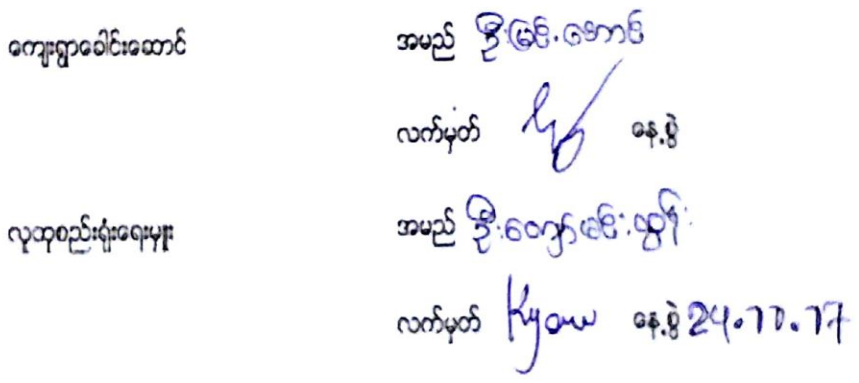 ကျေးရွာခေါင်းဆောင် အမည် ဦးမြင့်အောင်
လက်မှတ် နေ့စွဲ
လူထုစည်းရုံးရေးမှူး အမည် ဦးကျော်မင်းထွန်း
လက်မှတ် Kyaw နေ့စွဲ 24.10.17